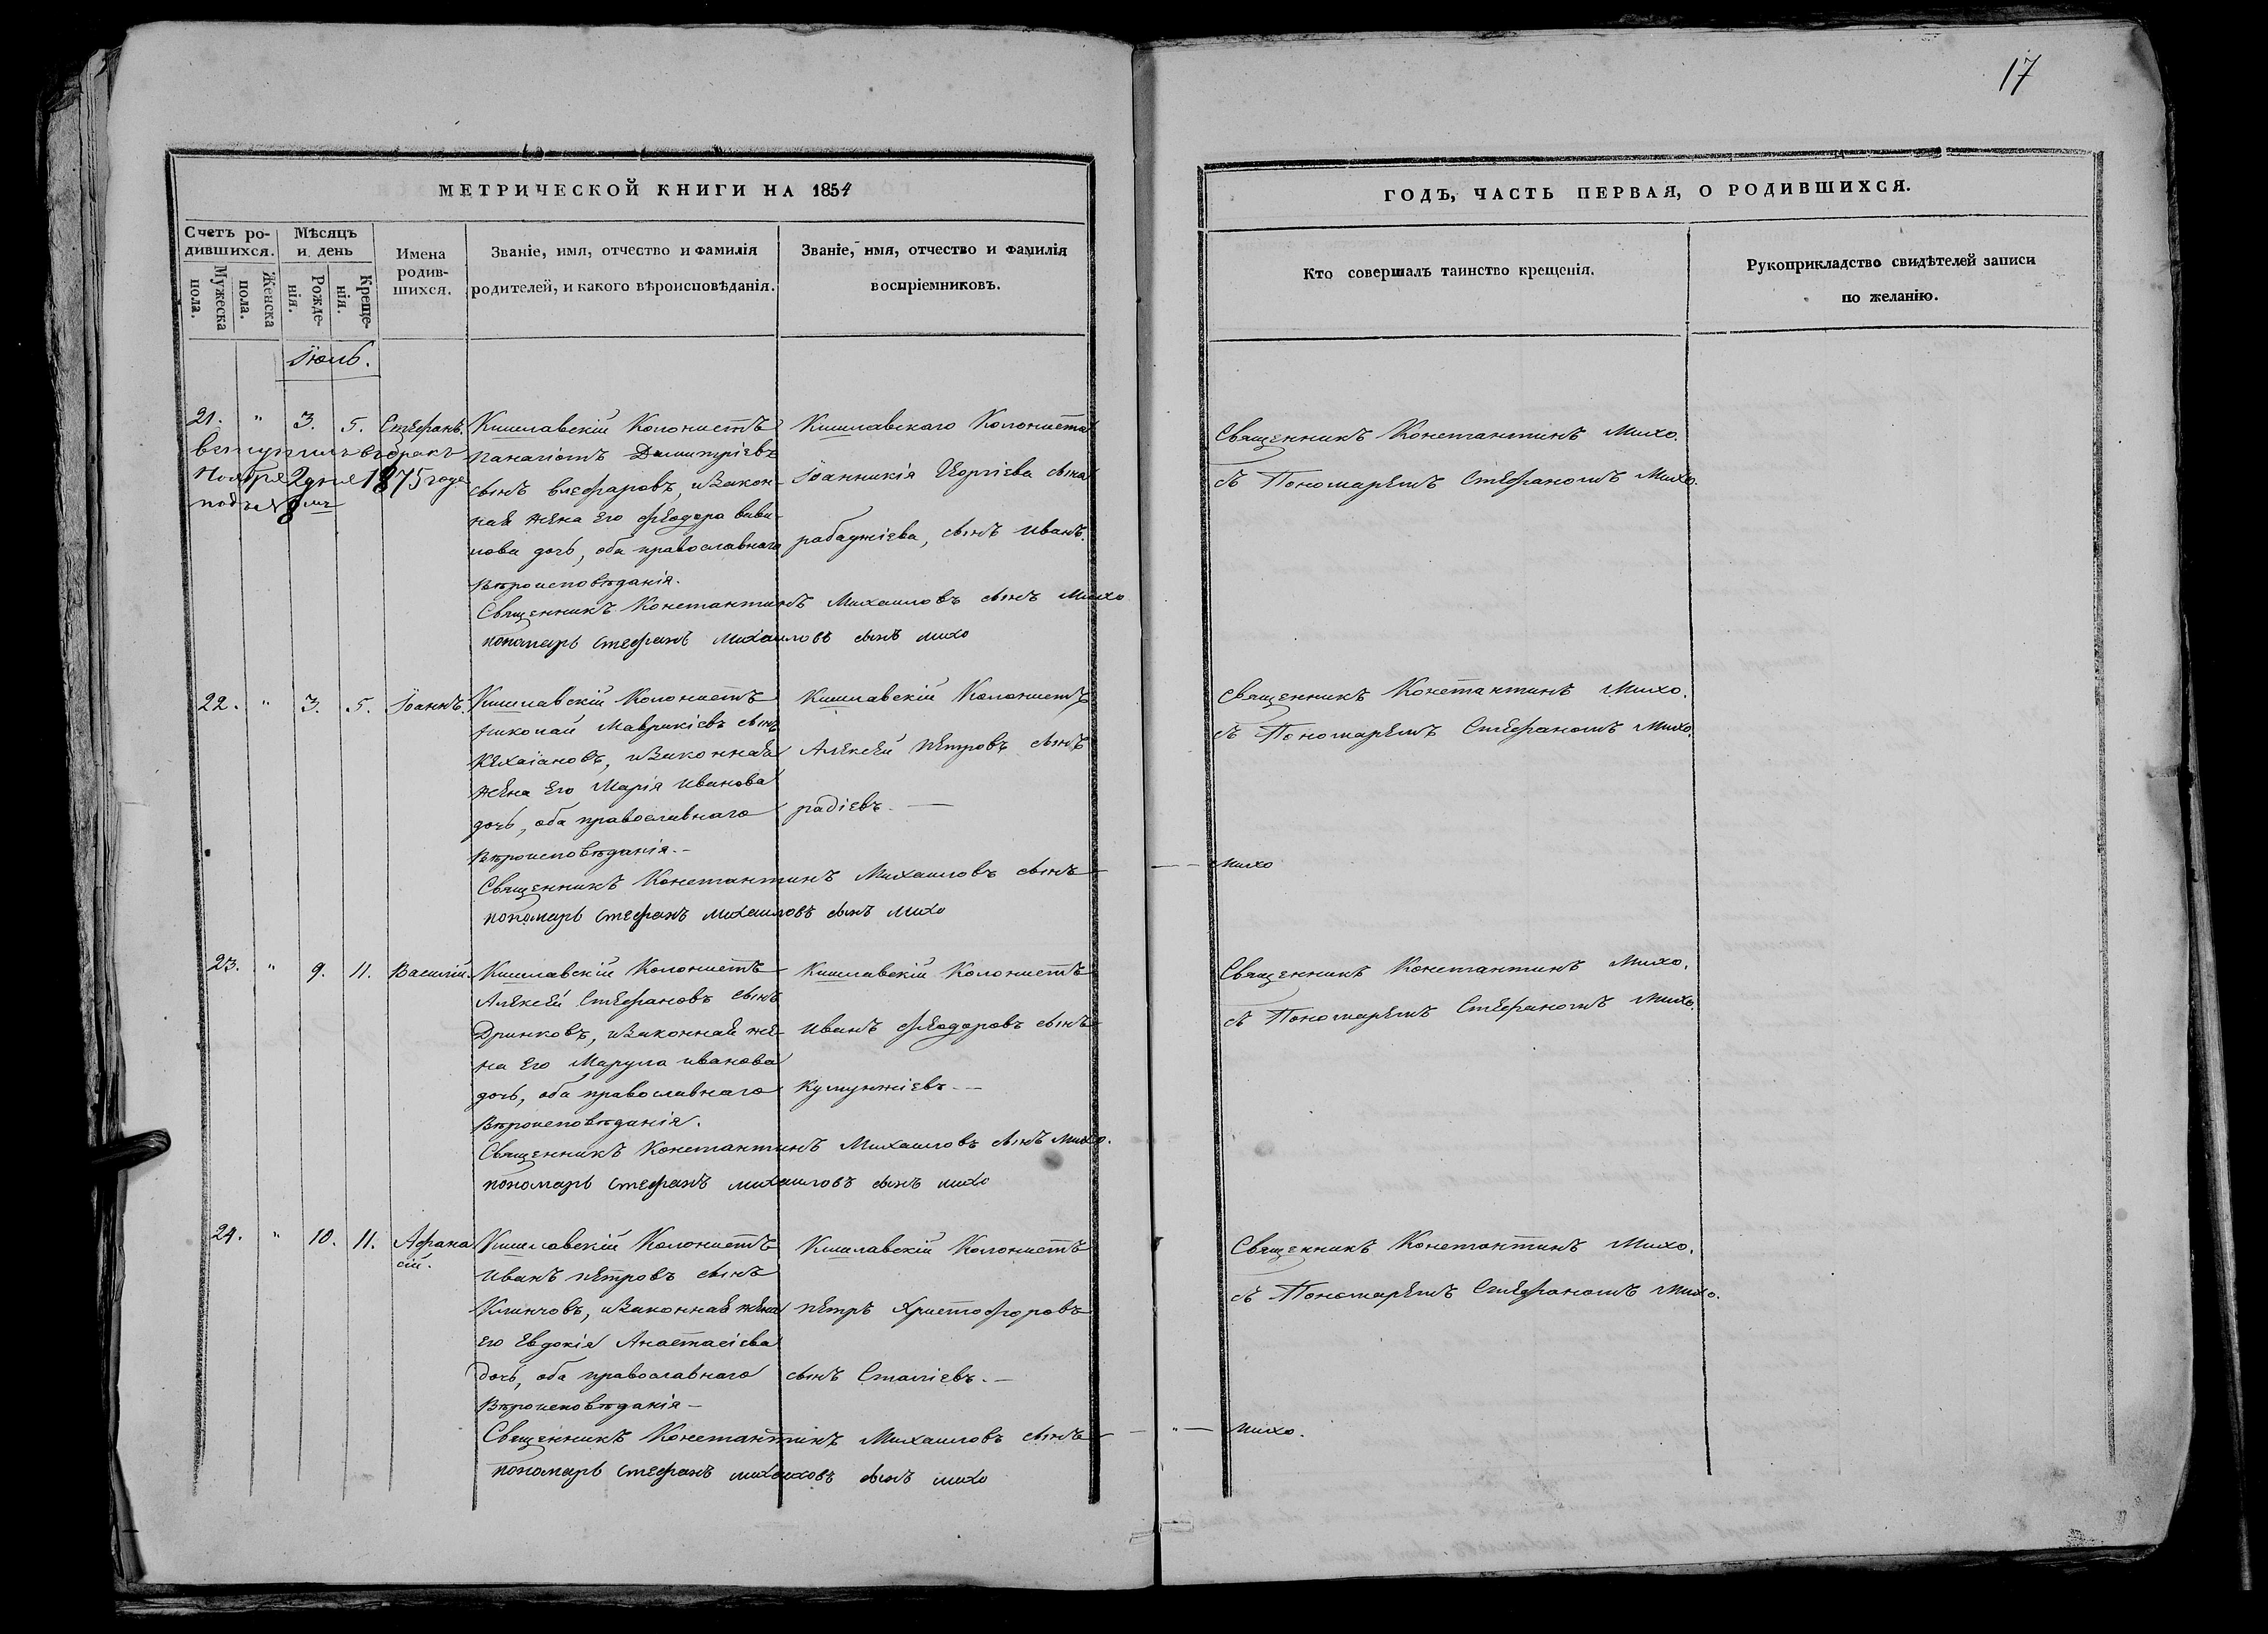 17
МЕТРИЧЕСКОЙ КНИГИ НА 1854
ГОДЪ, ЧАСТЬ ПЕРВАЯ, О РОДИВШИХСЯ.
Счетъ ро-
дившихся.
Мужеска
пола.
Женска
пола.
Мѣсяцъ
и день
Рожде-
нія.
Креще-
нія.
Имена
родив-
шихся.
Званіе, имя, отчество и фамилія
родителей, и какого вѣроисповѣданія.
Званіе, имя, отчество и фамилія
воспріемниковъ.
Кто совершалъ таинство крещенія.
Рукоприкладство свидѣтелей записи
по желанію.
Іюль.
21. " 3. 5. Стефанъ.
вступилъ въ бракъ
Ноября 2 дня 1875 года
подъ № 8мъ
Кишлавскій Колонистъ
Панагіотъ Димитріевъ
сынъ Влефаровъ, и закон-
ная жена его Феодора
дочь, оба православнаго
вѣроисповѣданія.
Священникъ Константинъ Михаиловъ сынъ Михо
пономарь Стефанъ Михаиловъ сынъ Михо
Кишлавскаго Колониста
Іоанникія Георгіева сына
рабаджіева, сынъ Иванъ.
Священникъ Константинъ Михо.
съ Пономаремъ Стефаномъ Михо.
22. " 3. 5. Іоаннъ.
Кишлавскій Колонистъ
Николай Маврикіевъ сынъ
Кехаіановъ, и законная
жена его Марія Иванова
дочь, оба православнаго
вѣроисповѣданія.-
Священникъ Константинъ Михаиловъ сынъ — — Михо
пономарь Стефанъ Михаиловъ сынъ Михо
Кишлавскій Колонистъ
Алексей Петровъ сынъ
радіевъ. —
Священникъ Константинъ Михо.
съ Пономаремъ Стефаномъ Михо.
23. " 9. 11. Василій.
Кишлавскій Колонистъ
Алексей Стефановъ сынъ
Дринковъ, и законная же-
на его Марула Иванова
дочь, оба православнаго
вѣроисповѣданія.
Священникъ Константинъ Михаиловъ сынъ Михо.
пономарь Стефанъ Михаиловъ сынъ Михо
Кишлавскій Колонистъ
Иванъ Феодоровъ сынъ
Куюнжіевъ. —
Священникъ Константинъ Михо.
съ Пономаремъ Стефаномъ Михо.
24. " 10. 11. Афана
сій.
Кишлавскій Колонистъ
Иванъ Петровъ сынъ
Клинчовъ, и законная жена
его Евдокія Анастасіева
дочь, оба православнаго
вѣроисповѣданія —
Священникъ Константинъ Михаиловъ сынъ — " — Михо.
пономарь Стефанъ Михаиловъ сынъ Михо
Кишлавскій Колонистъ
Петръ Христофоровъ
сынъ Стаміевъ. —
Священникъ Константинъ Михо.
съ Пономаремъ Стефаномъ Михо.